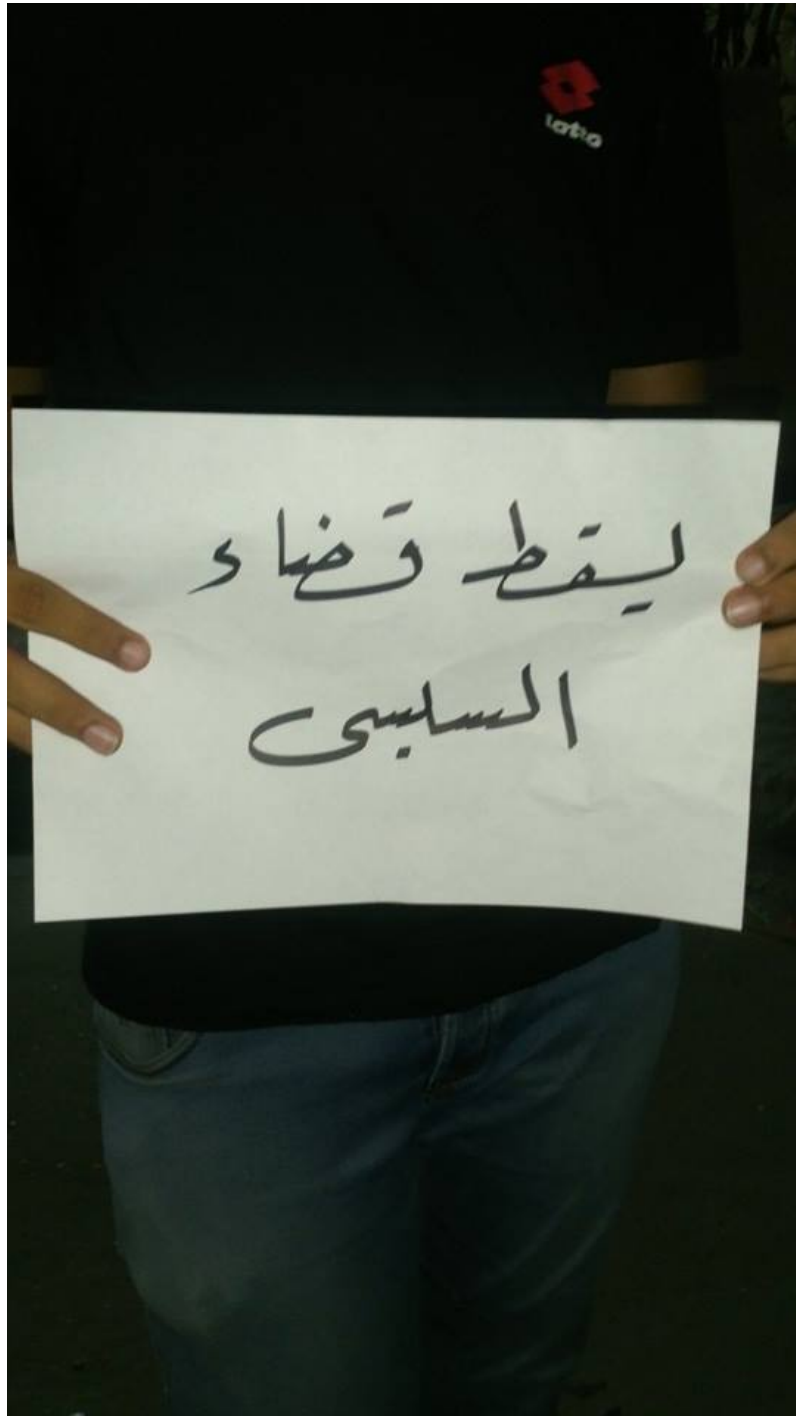 lotto
يسقط قضاء
السيسى